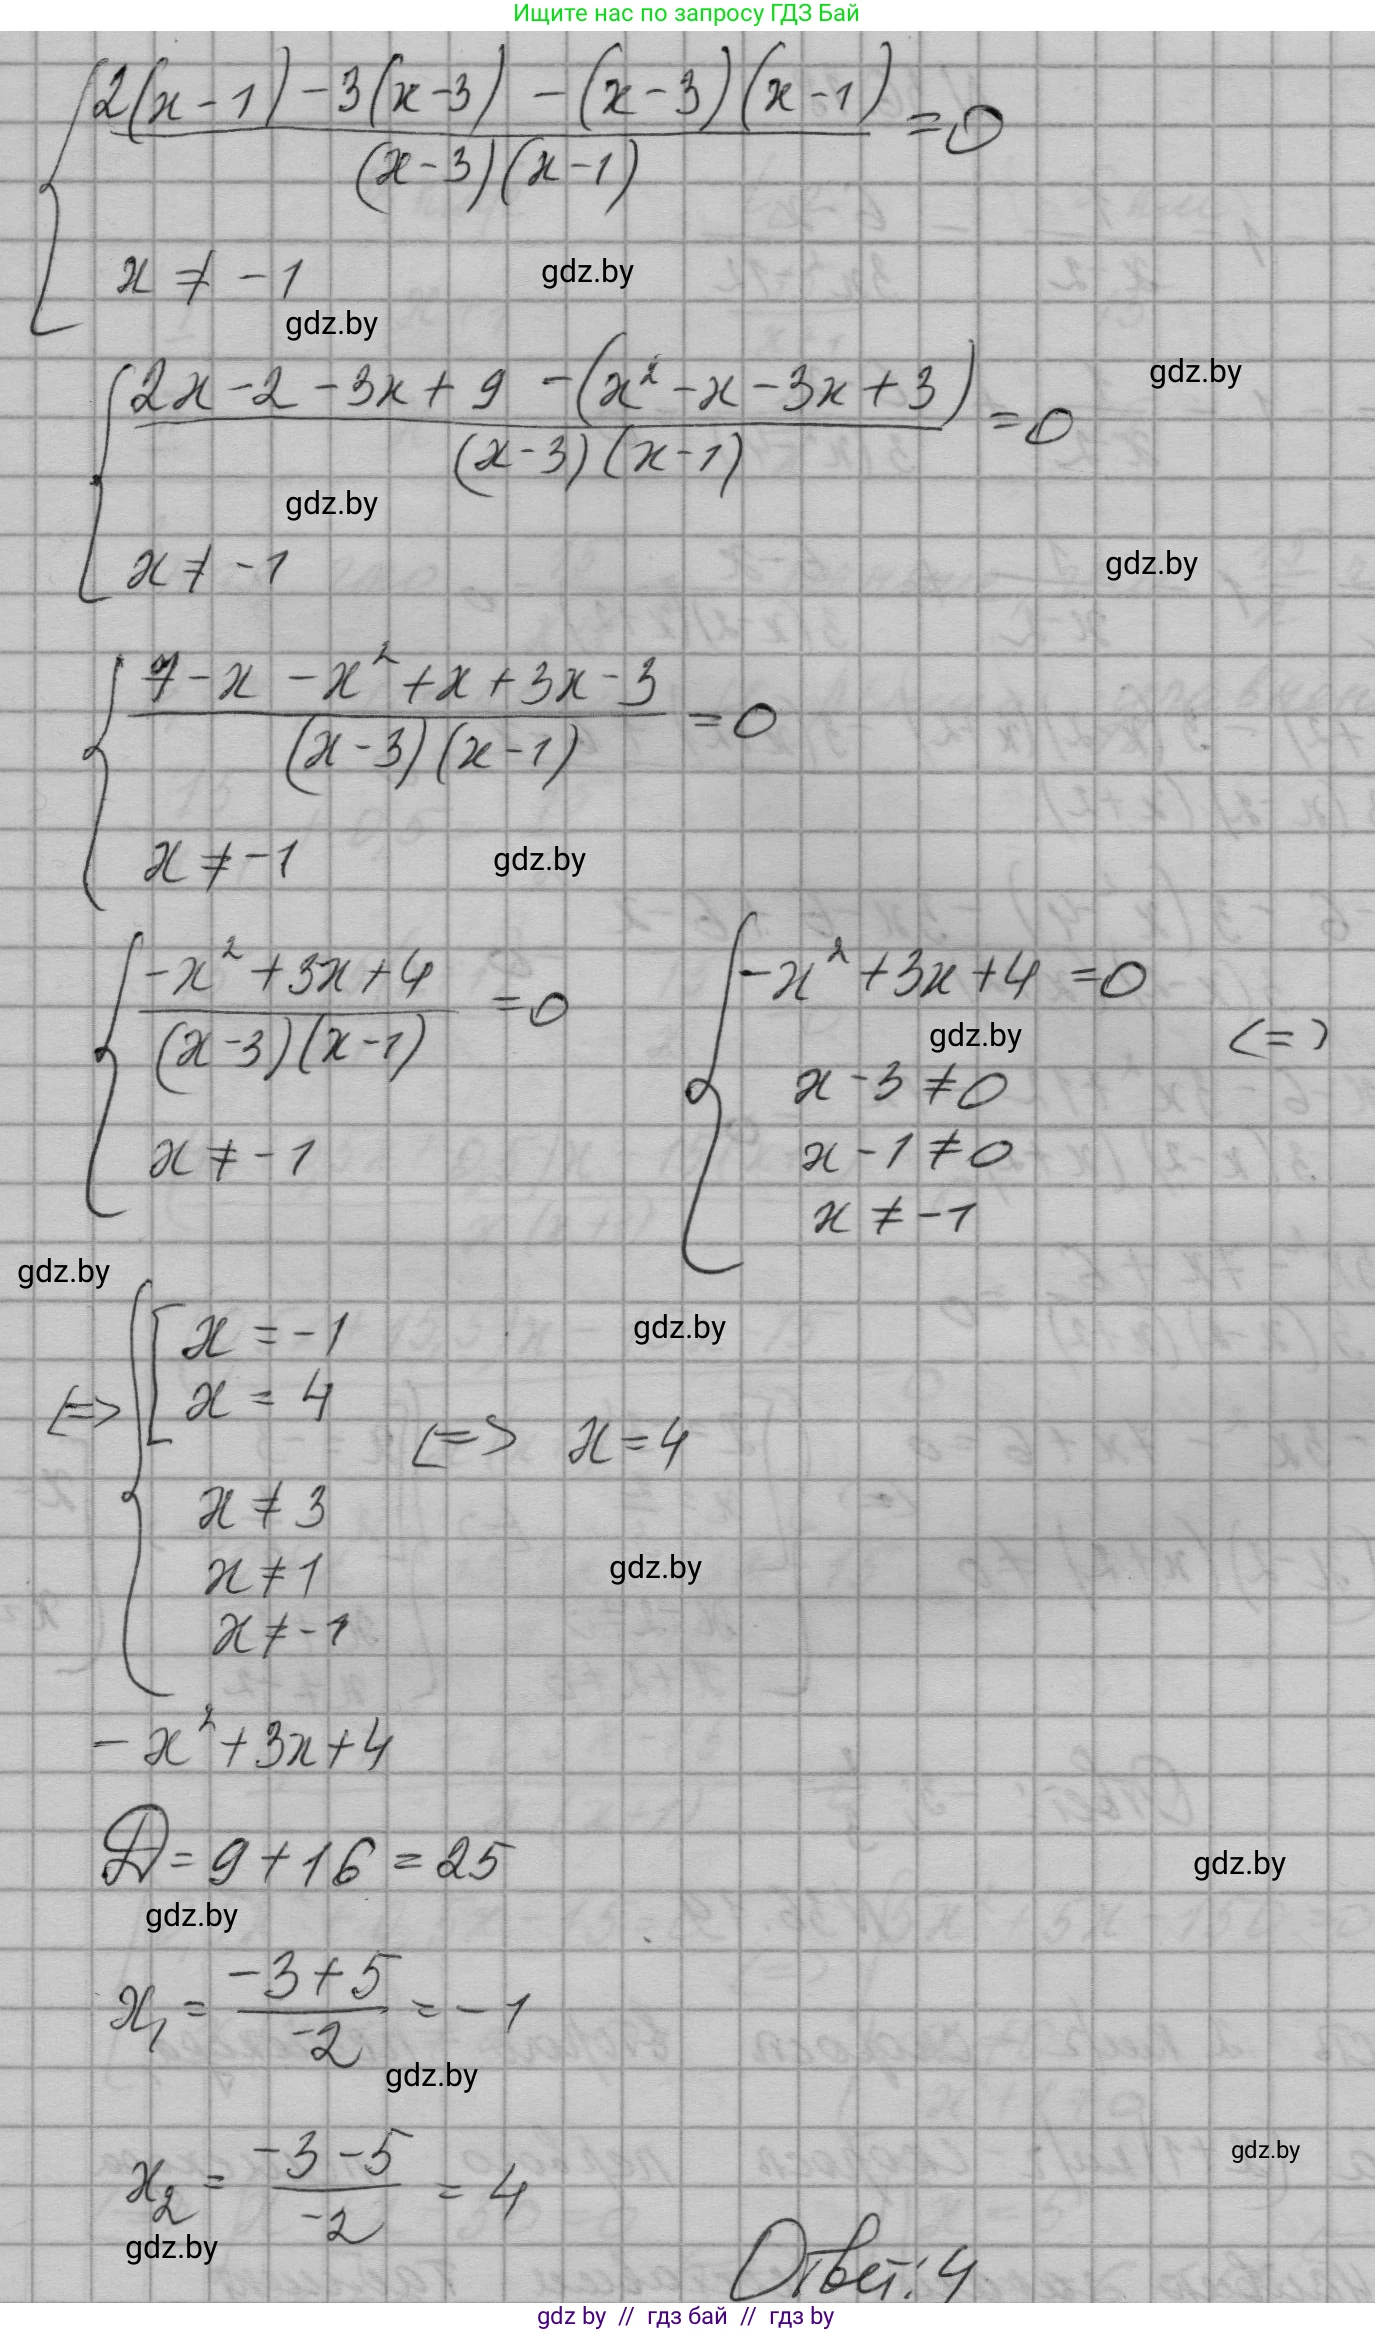 Ищите нас по запросу ГДЗ Бай
2(x-1)-3(x-3)-(x-3)(x-1)
(x-3)(x-1)
=0
x≠-1
gdz.by
gdz.by
2x-2-3x+9-(x²-x-3x+3)
(x-3)(x-1)
=0
gdz.by
gdz.by
x≠-1
gdz.by
7-x-x²+x+3x-3
(x-3)(x-1)
=0
x≠-1
gdz.by
-x²+3x+4
(x-3)(x-1)
=0
x≠-1
-x²+3x+4=0
gdz.by
x-3≠0
x-1≠0
x≠-1
<=>
gdz.by
<=>
x=-1
x=4
x≠3
x≠1
x≠-1
<=> x=4
gdz.by
gdz.by
-x²+3x+4
D=9+16=25
gdz.by
gdz.by
x₁=
-3+5
-2
=-1
gdz.by
x₂=
-3-5
-2
=4
gdz.by
gdz.by
Ответ: 4
gdz by // гдз бай // гдз by